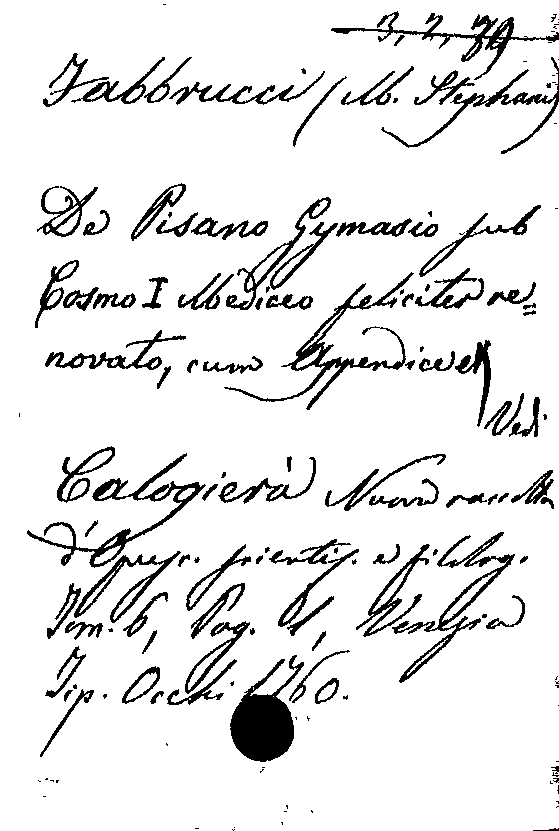 3, 2, 79
Fabbrucci (M. Stephani)
De Pisano Gymasio sub
Cosmo I Mediceo feliciter re=
novato, cum Appendice
Vedi
Calogierà Nuova raccolta
d'Opusc. scientif. e filolog.
Tom. 6, Pag. 1, Venezia
Tip. Occhi 1760.